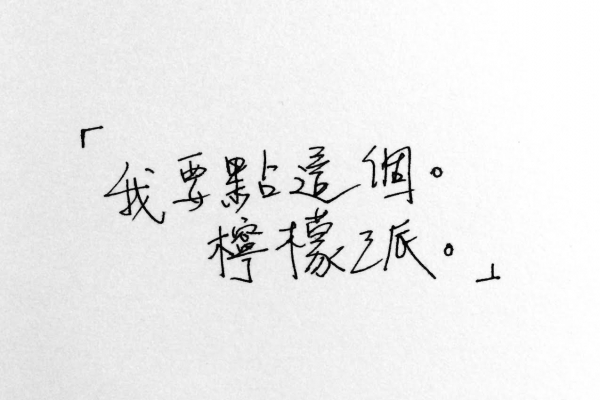 「我要點這個。
檸檬派。」